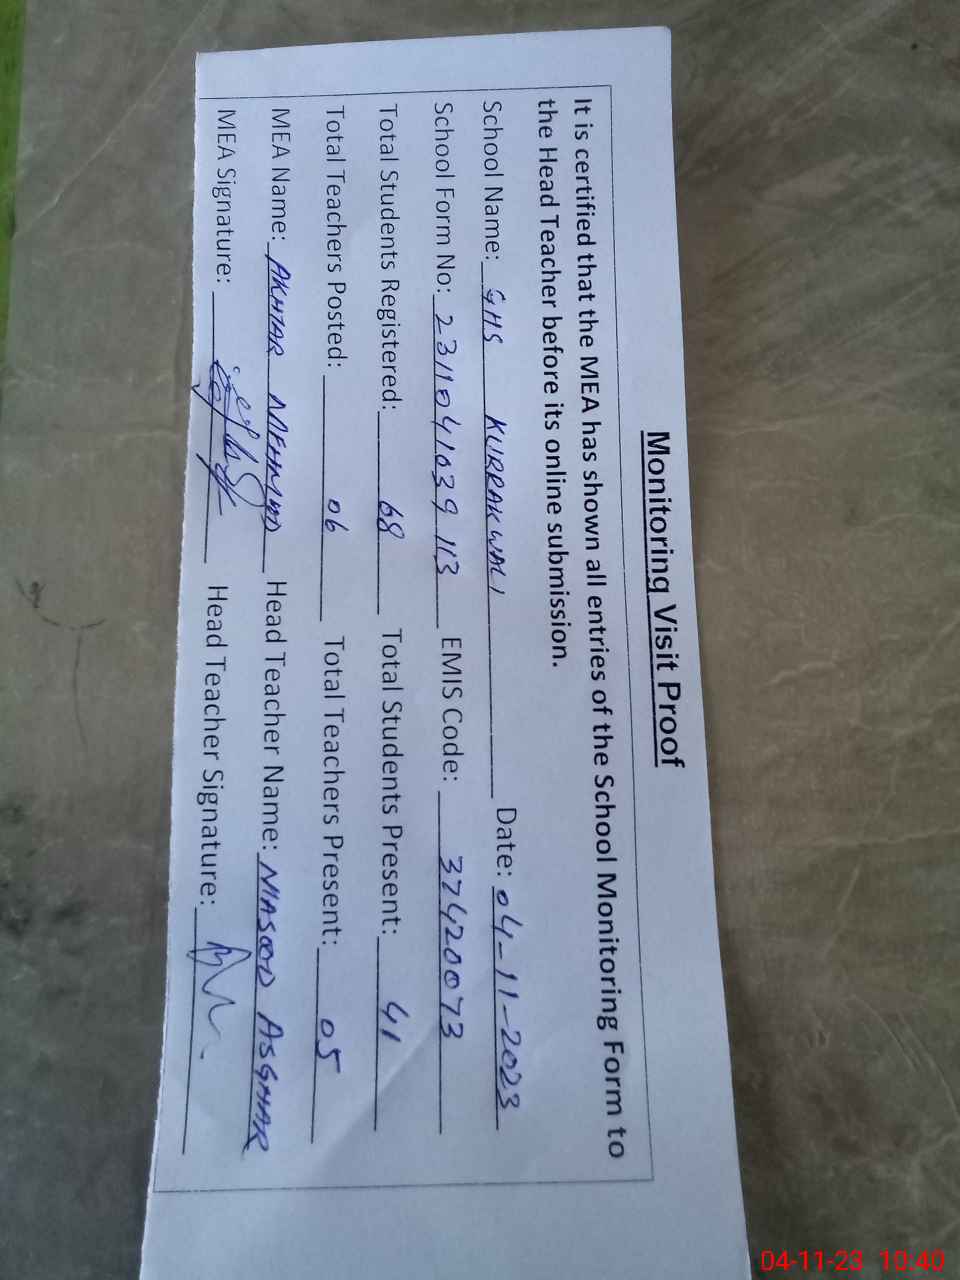 Monitoring Visit Proof
It is certified that the MEA has shown all entries of the School Monitoring Form to
the Head Teacher before its online submission.
School Name: GHS KURRAKWALI Date: 04-11-2023
School Form No: 2311041039113 EMIS Code: 37420073
Total Students Registered: 68 Total Students Present: 41
Total Teachers Posted: 06 Total Teachers Present: 05
MEA Name: AKHTAR MEHMUD Head Teacher Name: MASOOD ASGHAR
MEA Signature: Head Teacher Signature:
04-11-23 10:40